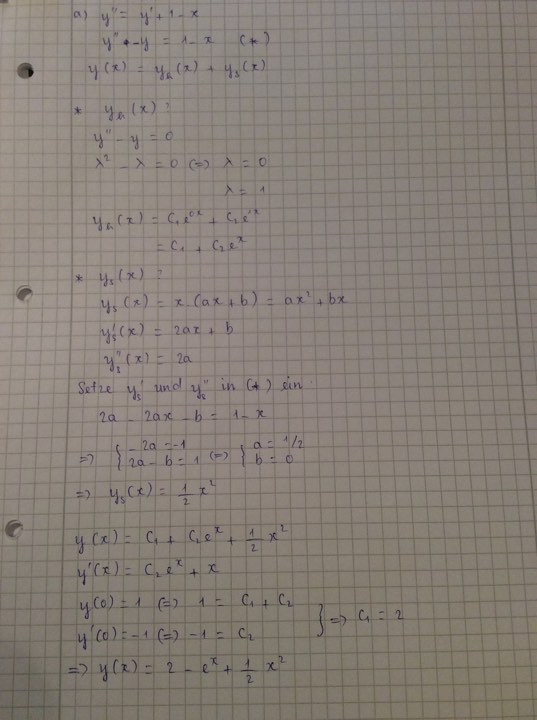 a) y'' = y' + 1 - x
y'' - y = 1 - x (*)
y(x) = y_h(x) + y_s(x)
* y_h(x) ?
y'' - y = 0
λ² - λ = 0 (=) λ = 0
λ = 1
y_h(x) = C₁e^{0x} + C₂e^{1x}
= C₁ + C₂e^x
* y_s(x) ?
y_s(x) = x·(ax + b) = ax² + bx
y_s'(x) = 2ax + b
y_s''(x) = 2a
Setze y_s' und y_s'' in (*) ein.
2a - 2ax - b = 1 - x
=> { -2a = -1 (=) { a = 1/2
2a - b = 1 b = 0
=> y_s(x) = 1/2 x²
y(x) = C₁ + C₂e^x + 1/2 x²
y'(x) = C₂e^x + x
y(0) = 1 (=) 1 = C₁ + C₂
y'(0) = -1 (=) -1 = C₂ } => C₁ = 2
=> y(x) = 2 - e^x + 1/2 x²